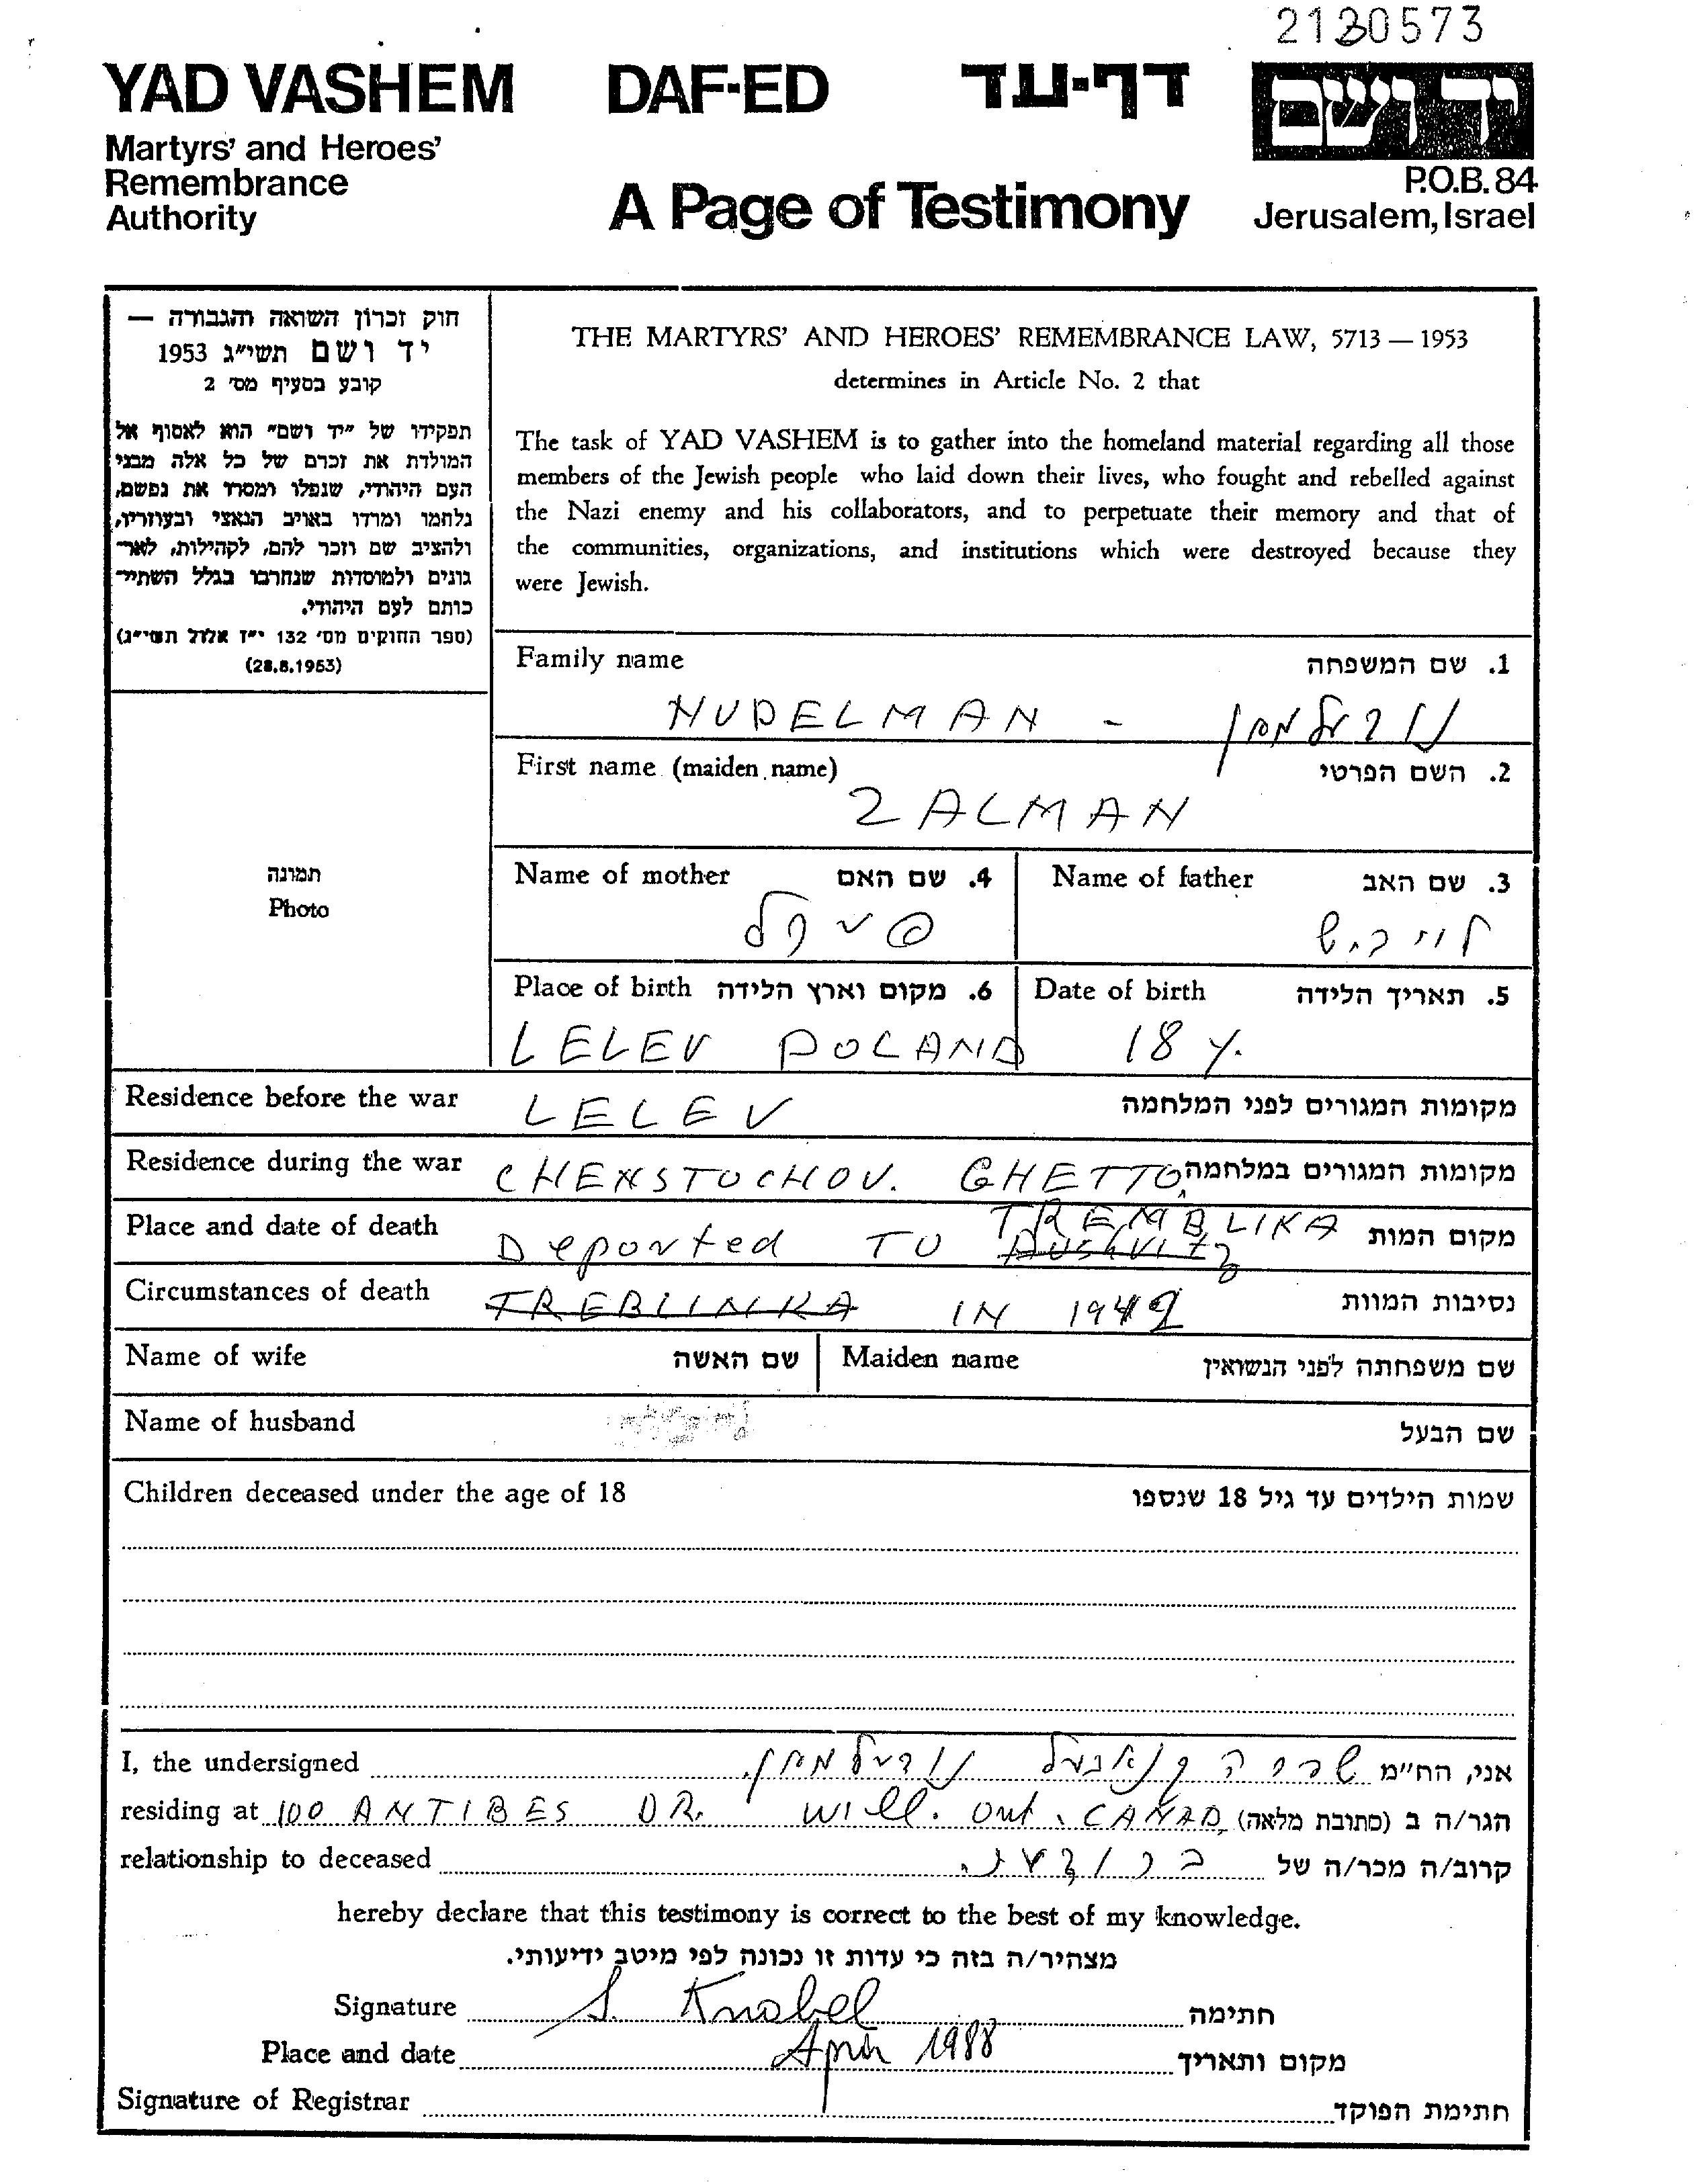 2130573
YAD VASHEM DAF-ED דף-עד יד ושם
Martyrs' and Heroes'
Remembrance
Authority
A Page of Testimony
P.O.B. 84
Jerusalem, Israel
חוק זכרון השואה והגבורה —
יד ושם תשי"ג 1953
קובע בסעיף מס' 2
תפקידו של "יד ושם" הוא לאסוף אל
המולדת את זכרם של כל אלה מבני
העם היהודי, שנפלו ומסרו את נפשם,
נלחמו ומרדו באויב הנאצי ובעוזריו,
ולהציב שם וזכר להם, לקהילות, לאר־
גונים ולמוסדות שנחרבו בגלל השתיי־
כותם לעם היהודי.
(ספר החוקים מס' 132 י"ז אלול תשי"ג)
(28.8.1953)
תמונה
Photo
THE MARTYRS' AND HEROES' REMEMBRANCE LAW, 5713 — 1953
determines in Article No. 2 that
The task of YAD VASHEM is to gather into the homeland material regarding all those
members of the Jewish people who laid down their lives, who fought and rebelled against
the Nazi enemy and his collaborators, and to perpetuate their memory and that of
the communities, organizations, and institutions which were destroyed because they
were Jewish.
Family name 1. שם המשפחה
NUDELMAN - נודעלמאן
First name (maiden name) 2. השם הפרטי
ZALMAN
Name of mother 4. שם האם Name of father 3. שם האב
פערל לייביש
Place of birth 6. מקום וארץ הלידה Date of birth 5. תאריך הלידה
LELEV POLAND 18 y.
Residence before the war LELEV מקומות המגורים לפני המלחמה
Residence during the war CHENSTOCHOV. GHETTO מקומות המגורים במלחמה
Place and date of death Deported TO TREMBLIKA Aushvitz מקום המות
Circumstances of death TREBLINKA IN 1942 נסיבות המוות
Name of wife שם האשה Maiden name שם משפחתה לפני הנשואין
Name of husband שם הבעל
Children deceased under the age of 18 שמות הילדים עד גיל 18 שנספו
I, the undersigned שרה קנאבעל נודעלמאן. אני, הח"מ
residing at 100 ANTIBES DR. Will. Ont. CANAD הגר/ה ב (כתובת מלאה)
relationship to deceased ברודער. קרוב/ה מכר/ה של
hereby declare that this testimony is correct to the best of my knowledge.
מצהיר/ה בזה כי עדות זו נכונה לפי מיטב ידיעותי.
Signature S. Knobel חתימה
Place and date April 1988 מקום ותאריך
Signature of Registrar חתימת הפוקד